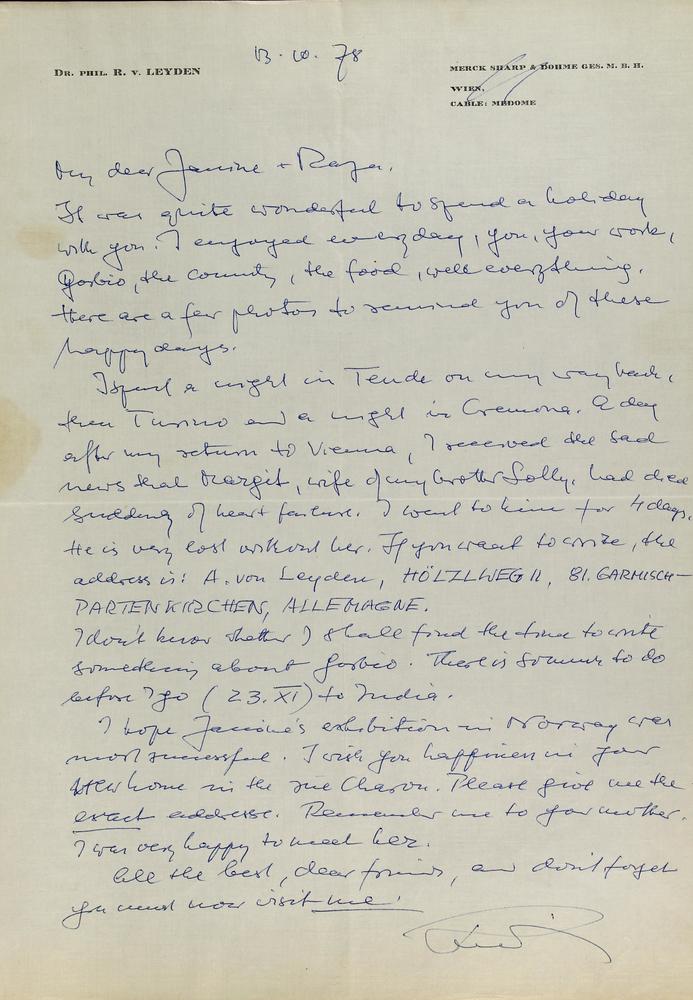 13.10.78
DR. PHIL. R. V. LEYDEN
MERCK SHARP & DOHME GES. M. B. H.
WIEN,
CABLE: MEDOME
My dear Janine + Raza.
It was quite wonderful to spend a holiday
with you. I enjoyed every day, you, your work,
Gorbio, the country, the food, well everything.
Here are a few photos to remind you of these
happy days.
I spent a night in Tende on my way back,
then Turino and a night in Cremona. A day
after my return to Vienna, I received the sad
news that Margit, wife of my brother Solly, had died
suddenly of heart failure. I went to him for 4 days.
He is very lost without her. If you want to write, the
address is: A. von Leyden, HÖLZLWEG 11, 81. GARMISCH-
PARTENKIRCHEN, ALLEMAGNE.
I don't know whether I shall find the time to write
something about Gorbio. There is so much to do
before I go (23.XI) to India.
I hope Janine's exhibition in Norway was
most successful. I wish you happiness in your
new home in the rue Charon. Please give me the
exact address. Remember me to your mother.
I was very happy to meet her.
All the best, dear friends, and don't forget
you must now visit me!